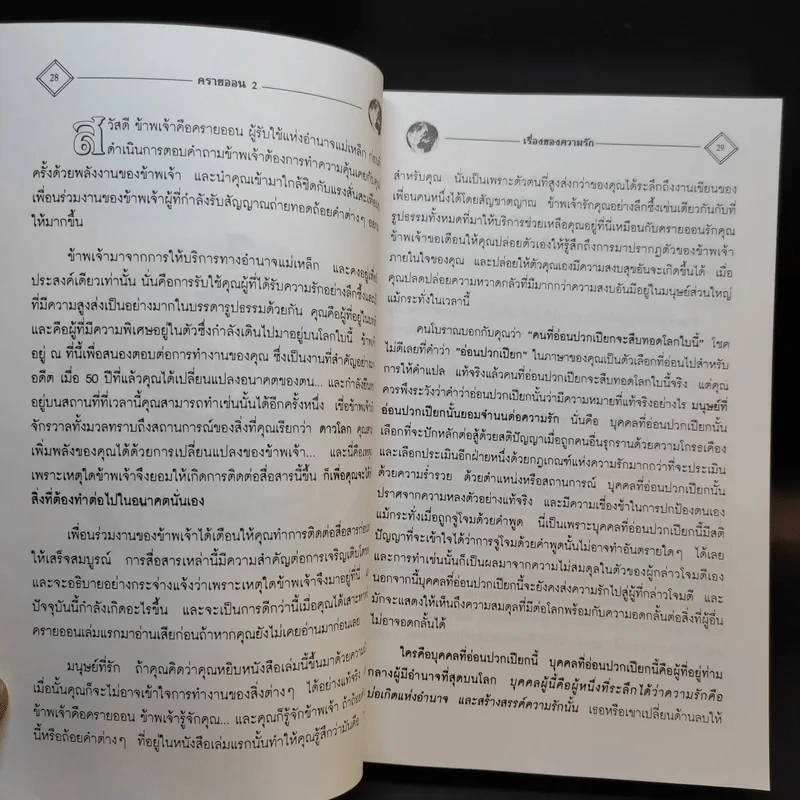 28
คราฮออน 2
สวัสดี ข้าพเจ้าคือครายออน ผู้รับใช้แห่งอำนาจแม่เหล็ก
ดำเนินการตอบคำถามข้าพเจ้าต้องการทำความคุ้นเคยกับ
ครั้งด้วยพลังงานของข้าพเจ้า และนำคุณเข้ามาใกล้ชิดกับแรงสั่นสะเทือน
เพื่อนร่วมงานของข้าพเจ้าผู้ที่กำลังรับสัญญาณถ่ายทอดถ้อยคำต่างๆ
ให้มากขึ้น
ข้าพเจ้ามาจากการให้บริการทางอำนาจแม่เหล็ก และคงอยู่เพื่อ
ประสงค์เดียวเท่านั้น นั่นคือการรับใช้คุณผู้ที่ได้รับความรักอย่างลึกซึ้ง
ที่มีความสูงส่งเป็นอย่างมากในบรรดารูปธรรมด้วยกัน คุณคือผู้ที่อยู่ใน
และคือผู้ที่มีความพิเศษอยู่ในตัวซึ่งกำลังเดินไปมาอยู่บนโลกใบนี้
อยู่ ณ ที่นี้เพื่อสนองตอบต่อการทำงานของคุณ ซึ่งเป็นงานที่สำคัญอย่าง
อดีต เมื่อ 50 ปีที่แล้วคุณได้เปลี่ยนแปลงอนาคตของตน... และกำลังยืน
อยู่บนสถานที่ที่เวลานี้คุณสามารถทำเช่นนั้นได้อีกครั้งหนึ่ง เชื่อข้าพเจ้า
จักรวาลทั้งมวลทราบถึงสถานการณ์ของสิ่งที่คุณเรียกว่า ดาวโลก
เพิ่มพลังของคุณได้ด้วยการเปลี่ยนแปลงของข้าพเจ้า... และนี่คือ
เพราะเหตุใดข้าพเจ้าจึงยอมให้เกิดการติดต่อสื่อสารนี้ขึ้น ก็เพื่อคุณจะได้
สิ่งที่ต้องทำต่อไปในอนาคตนั่นเอง
เพื่อนร่วมงานของข้าพเจ้าได้เตือนให้คุณทำการติดต่อสื่อสารก่อน
ให้เสร็จสมบูรณ์ การสื่อสารเหล่านี้มีความสำคัญต่อการเจริญเติบโต
และจะอธิบายอย่างกระจ่างแจ้งว่าเพราะเหตุใดข้าพเจ้าจึงมาอยู่ที่นี่
ปัจจุบันนี้กำลังเกิดอะไรขึ้น และจะเป็นการดีกว่านี้เมื่อคุณได้เสาะหา
ครายออนเล่มแรกมาอ่านเสียก่อนถ้าหากคุณยังไม่เคยอ่านมาก่อนเลย
มนุษย์ที่รัก ถ้าคุณคิดว่าคุณหยิบหนังสือเล่มนี้ขึ้นมาด้วยความ
เมื่อนั้นคุณก็จะไม่อาจเข้าใจการทำงานของสิ่งต่างๆ ได้อย่างแท้จริง
ข้าพเจ้าคือครายออน ข้าพเจ้ารู้จักคุณ... และคุณก็รู้จักข้าพเจ้า
นี้หรือถ้อยคำต่างๆ ที่อยู่ในหนังสือเล่มแรกนั้นทำให้คุณรู้สึกว่ามันคือ
เรื่องของความรัก
29
สำหรับคุณ นั่นเป็นเพราะตัวตนที่สูงส่งกว่าของคุณได้ระลึกถึงงานเขียนของ
เพื่อนคนหนึ่งได้โดยสัญชาตญาณ ข้าพเจ้ารักคุณอย่างลึกซึ้งเช่นเดียวกันกับที่
รูปธรรมทั้งหมดที่มาให้บริการช่วยเหลือคุณอยู่ที่นี่เหมือนกับครายออนรักคุณ
ข้าพเจ้าขอเตือนให้คุณปล่อยตัวเองให้รู้สึกถึงการมาปรากฏตัวของข้าพเจ้า
ภายในใจของคุณ และปล่อยให้ตัวคุณเองมีความสงบสุขอันจะเกิดขึ้นได้ เมื่อ
คุณปลดปล่อยความหวาดกลัวที่มีมากกว่าความสงบอันมีอยู่ในมนุษย์ส่วนใหญ่
แม้กระทั่งในเวลานี้
คนโบราณบอกกับคุณว่า "คนที่อ่อนปวกเปียกจะสืบทอดโลกใบนี้" โชค
ไม่ดีเลยที่คำว่า "อ่อนปวกเปียก" ในภาษาของคุณเป็นตัวเลือกที่อ่อนไปสำหรับ
การให้คำแปล แท้จริงแล้วคนที่อ่อนปวกเปียกจะสืบทอดโลกใบนี้จริง แต่คุณ
ควรพึงระวังว่าคำว่าอ่อนปวกเปียกนั้นว่ามีความหมายที่แท้จริงอย่างไร มนุษย์ที่
อ่อนปวกเปียกนั้นยอมจำนนต่อความรัก นั่นคือ บุคคลที่อ่อนปวกเปียกนั้น
เลือกที่จะปักหลักต่อสู้ด้วยสติปัญญาเมื่อถูกคนอื่นรุกรานด้วยความโกรธเคือง
เลือกที่ประเมินอีกฝ่ายหนึ่งด้วยกฎเกณฑ์แห่งความรักมากกว่าที่จะประเมิน
ด้วยความร่ำรวย ด้วยตำแหน่งหรือสถานการณ์ บุคคลที่อ่อนปวกเปียกนั้น
ปราศจากความหลงตัวอย่างแท้จริง และมีความเชื่องช้าในการปกป้องตนเอง
แม้กระทั่งเมื่อถูกจู่โจมด้วยคำพูด นี่เป็นเพราะบุคคลที่อ่อนปวกเปียกนี้มีสติ
ปัญญาที่จะเข้าใจได้ว่าการจู่โจมด้วยคำพูดนั้นไม่อาจทำอันตรายใดๆ ได้เลย
และการทำเช่นนั้นก็เป็นผลมาจากความไม่สมดุลในตัวของผู้กล่าวโจมตีเอง
นอกจากนี้บุคคลที่อ่อนปวกเปียกนี้จะยังคงส่งความรักไปสู่ผู้ที่กล่าวโจมตี และ
มักจะแสดงให้เห็นถึงความสมดุลที่มีต่อโลกพร้อมกับความอดกลั้นต่อสิ่งที่ผู้อื่น
ไม่อาจอดกลั้นได้
ใครคือบุคคลที่อ่อนปวกเปียกนี้ บุคคลที่อ่อนปวกเปียกนี้คือผู้ที่อยู่ท่าม
กลางผู้มีอำนาจที่สุดบนโลก บุคคลผู้นี้คือผู้หนึ่งที่ระลึกได้ว่าความรักคือ
บ่อเกิดแห่งอำนาจ และสร้างสรรค์ความรักนั้น เธอหรือเขาเปลี่ยนด้านลบให้